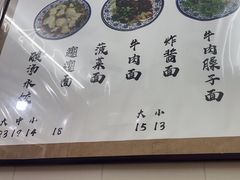 牛肉臊子面
炸酱面
牛肉面
菠菜面
酸汤水饺
大 小
15 13
大 中 小
19 14
18